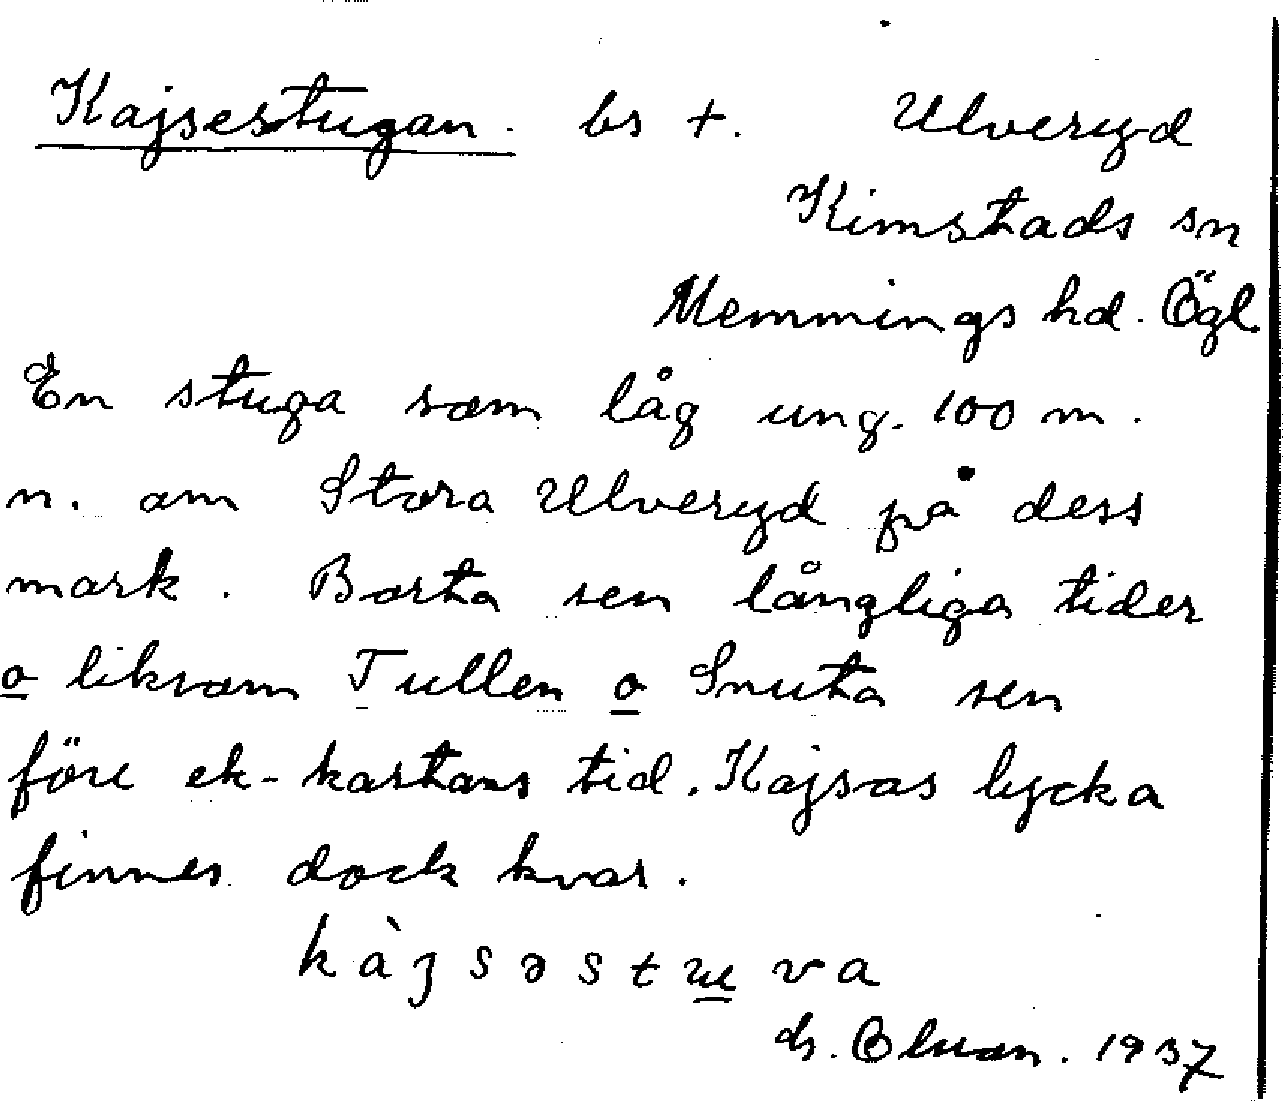 Kajsestugan. bs +. Ulveryd
Kimstads sn
Memmings hd. Ögl.
En stuga som låg ung. 100 m.
n. om Stora Ulveryd på dess
mark. Borta sen långliga tider
o liksom Tullen o Snuta sen
före ek-kartans tid. Kajsas lycka
finnes dock kvar.
kàjsəstuva
1937